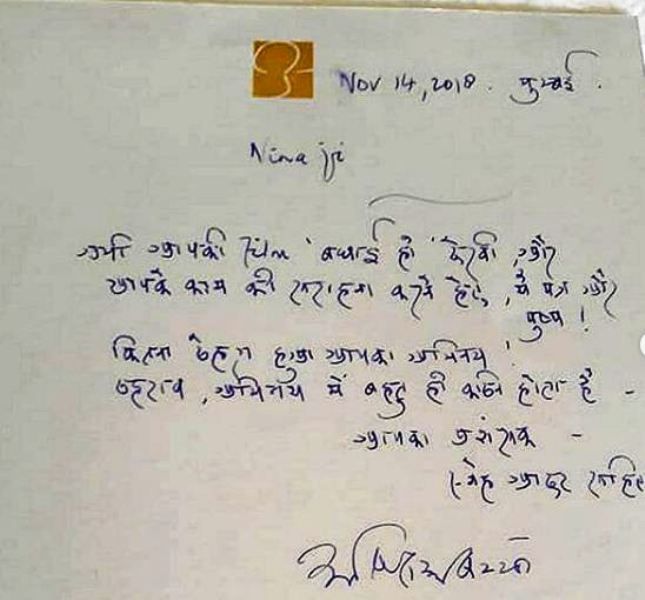 Nov 14, 2018. मुम्बई.
Nina ji
अभी आपकी film 'बधाई हो' देखी, और
आपके काम की सराहना करते हुए, ये पत्र और
पुष्प !
कितना ठहरा हुआ आपका अभिनय !
ठहराव, अभिनय में बहुत ही कठिन होता है -
आपका प्रशंसक -
स्नेह आदर सहित
अमिताभ बच्चन